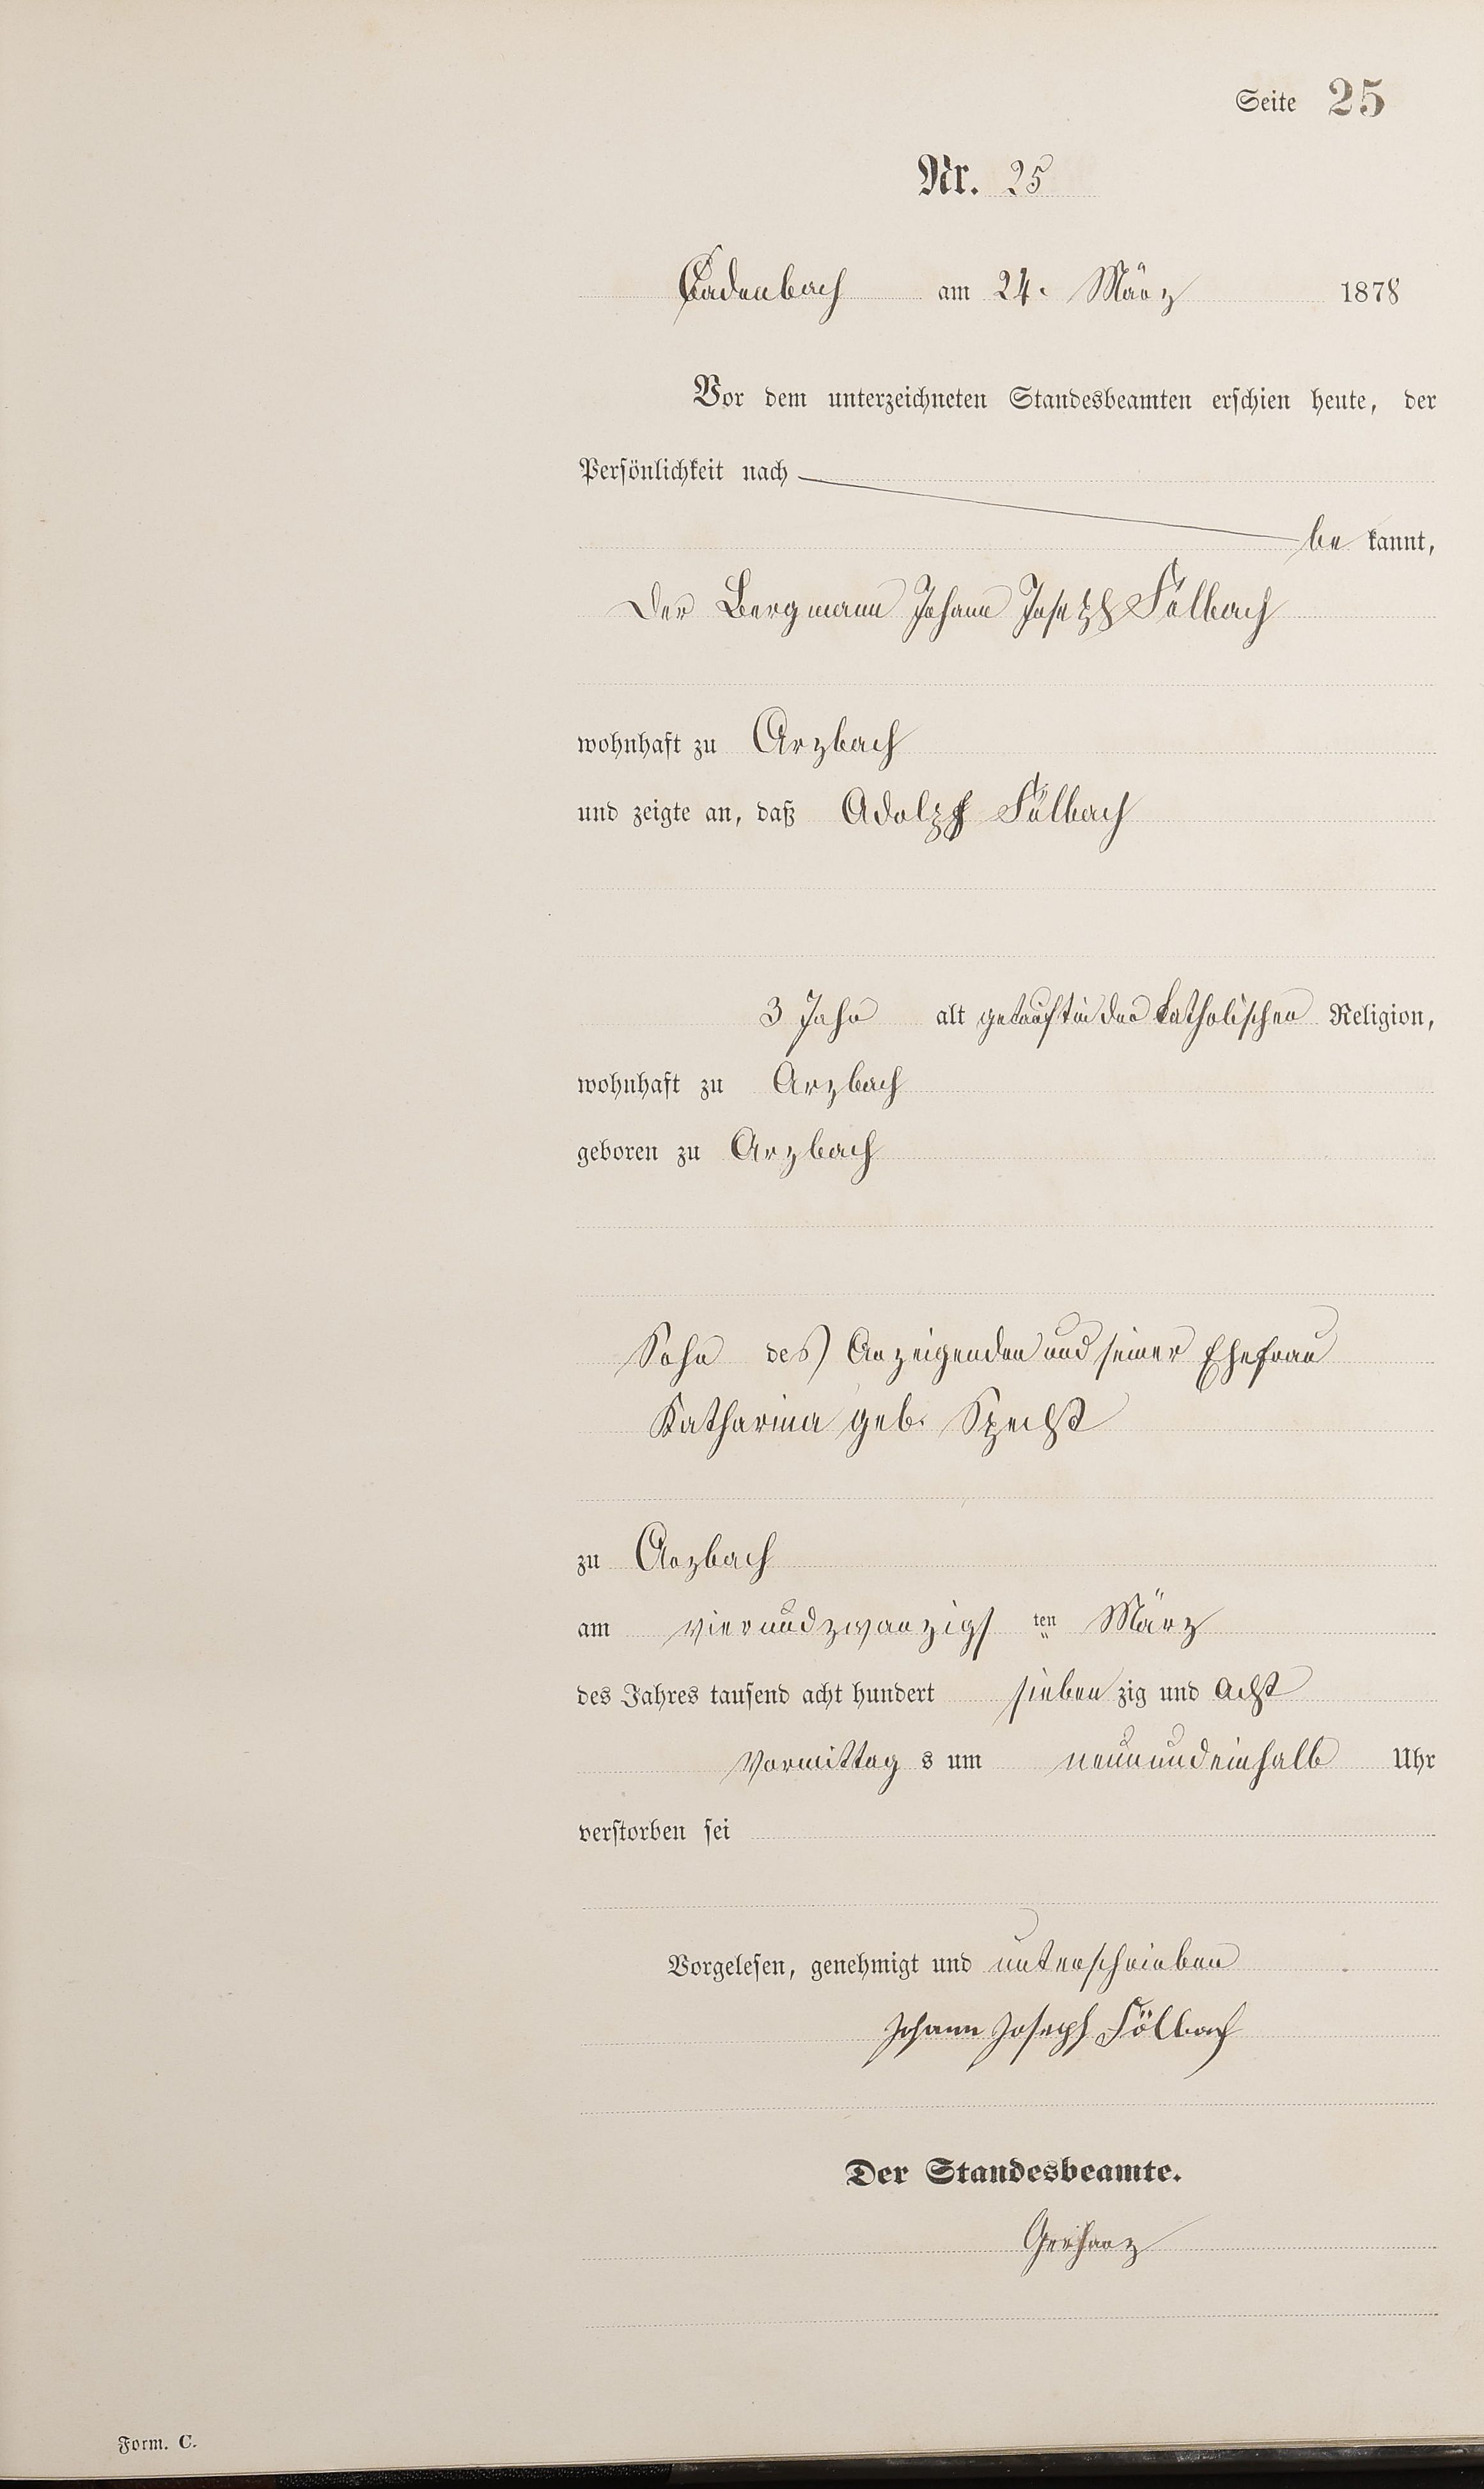 Seite 25
Nr. 25
Cadenbach am 24. März 1878
Vor dem unterzeichneten Standesbeamten erschien heute, der
Persönlichkeit nach
be kannt,
der Bergmann Johann Joseph Fölbach
wohnhaft zu Arzbach
und zeigte an, daß Adolph Fölbach
3 Jahr alt getauft in der katholischen Religion,
wohnhaft zu Arzbach
geboren zu Arzbach
Sohn des Anzeigenden und seiner Ehefrau
Katharina geb. Specht
zu Arzbach
am vierundzwanzigs ten März
des Jahres tausend acht hundert sieben zig und acht
Vormittag s um neunundeinhalb Uhr
verstorben sei
Vorgelesen, genehmigt und unterschrieben
Johann Joseph Fölbach
Der Standesbeamte.
Gerharz
Form. C.